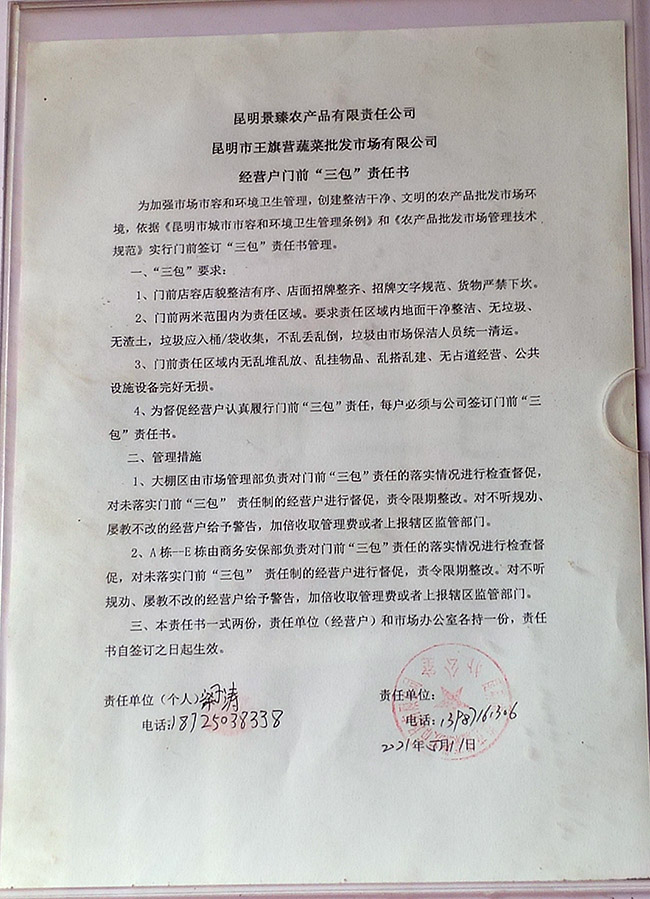 昆明景臻农产品有限责任公司
昆明市王旗营蔬菜批发市场有限公司
经营户门前“三包”责任书
为加强市场市容和环境卫生管理，创建整洁干净、文明的农产品批发市场环
境，依据《昆明市城市市容和环境卫生管理条例》和《农产品批发市场管理技术
规范》实行门前签订“三包”责任书管理。
一、“三包”要求：
1、门前店容店貌整洁有序、店面招牌整齐、招牌文字规范、货物严禁下坎。
2、门前两米范围内为责任区域。要求责任区域内地面干净整洁、无垃圾、
无渣土，垃圾应入桶/袋收集，不乱丢乱倒，垃圾由市场保洁人员统一清运。
3、门前责任区域内无乱堆乱放、乱挂物品、乱搭乱建、无占道经营、公共
设施设备完好无损。
4、为督促经营户认真履行门前“三包”责任，每户必须与公司签订门前“三
包”责任书。
二、管理措施
1、大棚区由市场管理部负责对门前“三包”责任的落实情况进行检查督促，
对未落实门前“三包” 责任制的经营户进行督促，责令限期整改。对不听规劝、
屡教不改的经营户给予警告，加倍收取管理费或者上报辖区监管部门。
2、A 栋--E 栋由商务安保部负责对门前“三包”责任的落实情况进行检查督
促，对未落实门前“三包” 责任制的经营户进行督促，责令限期整改。对不听
规劝、屡教不改的经营户给予警告，加倍收取管理费或者上报辖区监管部门。
三、本责任书一式两份，责任单位（经营户）和市场办公室各持一份，责任
书自签订之日起生效。
责任单位（个人） 涛
责任单位：
电话:18725038338
电话：
2021年 月11日
办公室